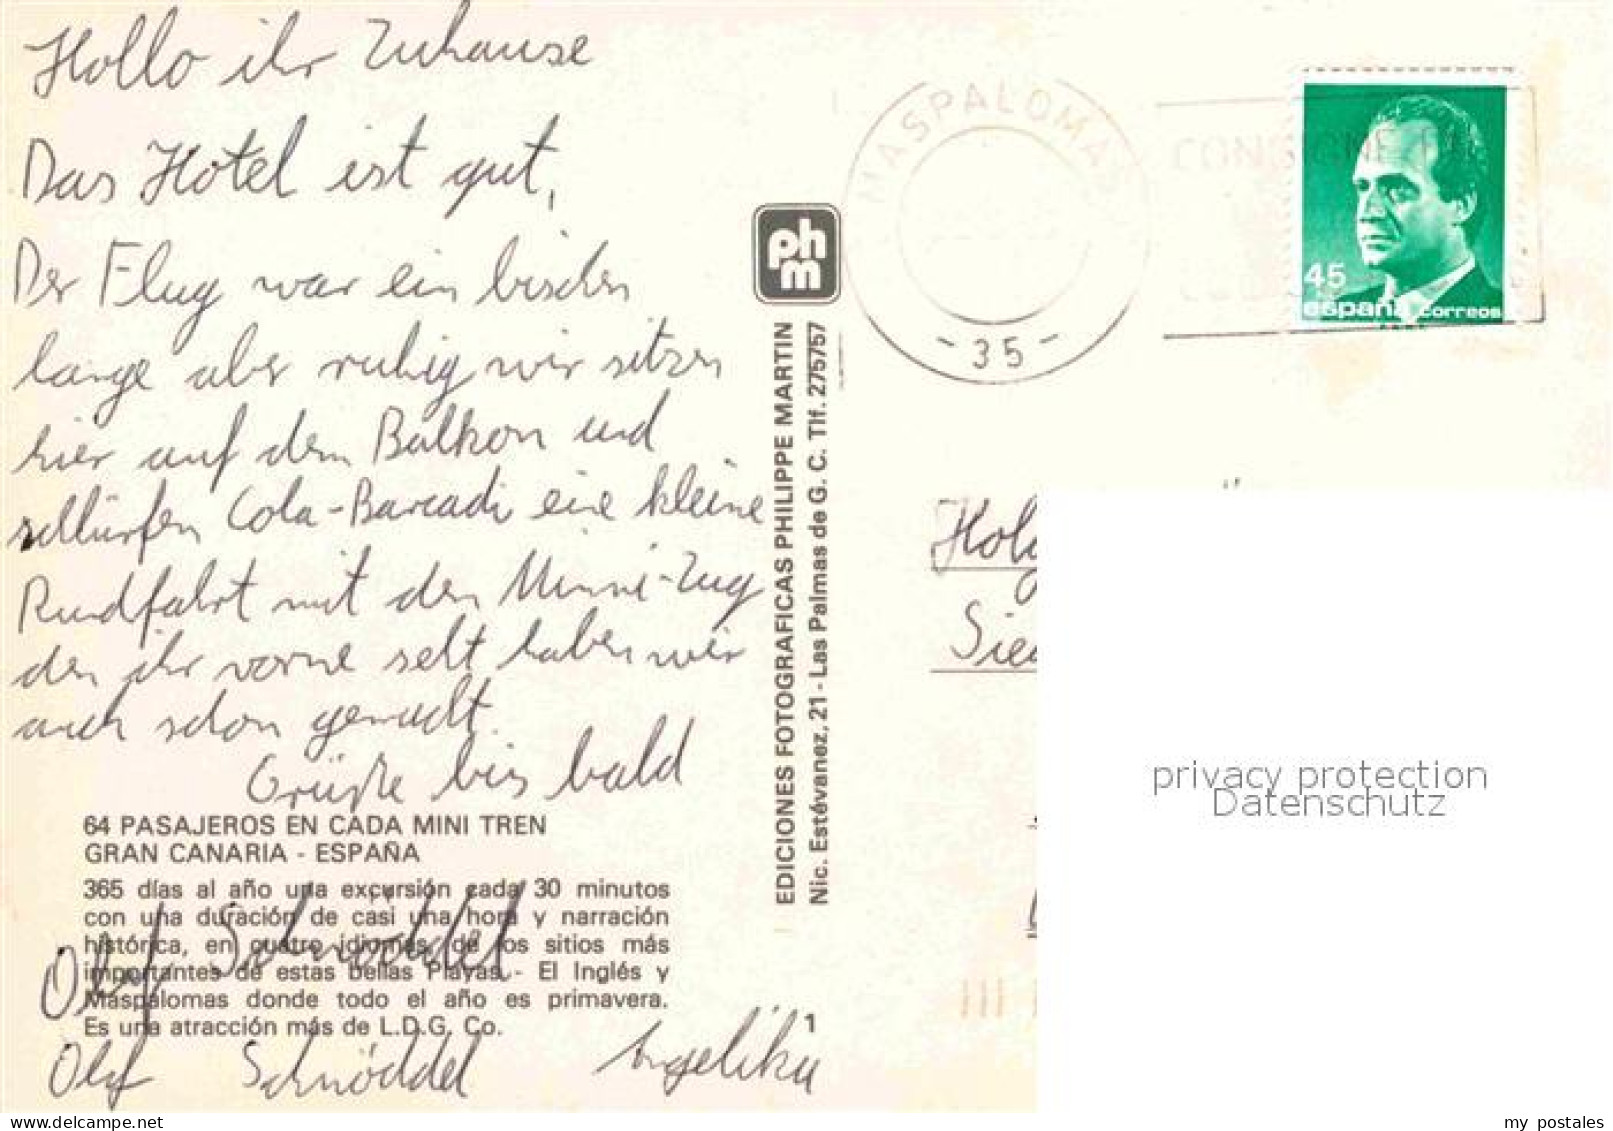 Hollo ihr Zuhause
Das Hotel ist gut,
Der Flug war ein bischen
lange aber ruhig wir sitzen
hier auf dem Balkon und
schlürfen Cola-Barcadi eine kleine
Rundfahrt mit den Minni-Zug
den ihr vorne seht haben wir
auch schon gemacht.
Grüße bis bald
64 PASAJEROS EN CADA MINI TREN
GRAN CANARIA - ESPAÑA
365 días al año una excursión cada 30 minutos
con una duración de casi una hora y narración
histórica, en cuatro idiomas, de los sitios más
importantes de estas bellas Playas.- El Inglés y
Maspalomas donde todo el año es primavera.
Es una atracción más de L.D.G. Co.
Olaf Schnöddel
Olaf Schnöddel Angelika
1
phm
EDICIONES FOTOGRAFICAS PHILIPPE MARTIN
Nic. Estévanez, 21 - Las Palmas de G. C. Tlf. 275757
MASPALOMAS
- 35 -
45
españa correos
privacy protection
Datenschutz
delcampe.net
my_postales